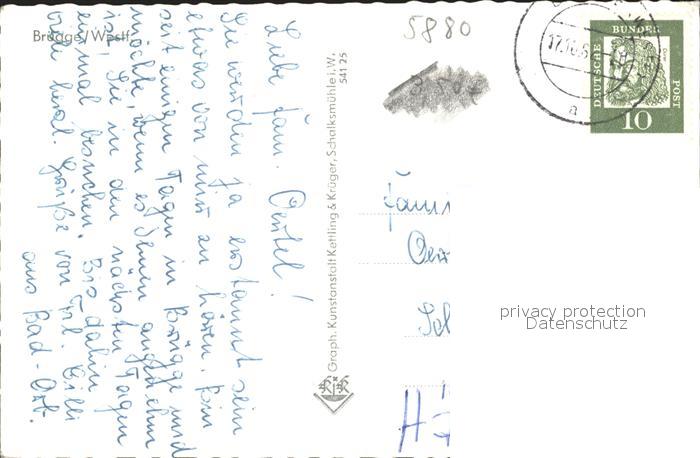 Brügge/Westf.
Liebe Fam. Oertel!
Sie werden ja erstaunt sein
etwas von mir zu hören. Bin
seit einigen Tagen in Brügge und
möchte, wenn es Ihnen angenehm
ist, Sie in den nächsten Tagen
einmal besuchen. Bis dahin
viele herzl. Grüße von Frl. Cilli
aus Bad-Orb.
Graph. Kunstanstalt Kettling & Krüger, Schalksmühle i.W.
541 25
KK
5880
17.10.6
a
DEUTSCHE
BUNDES
POST
10
Fami
Oer
privacy protection
Datenschutz